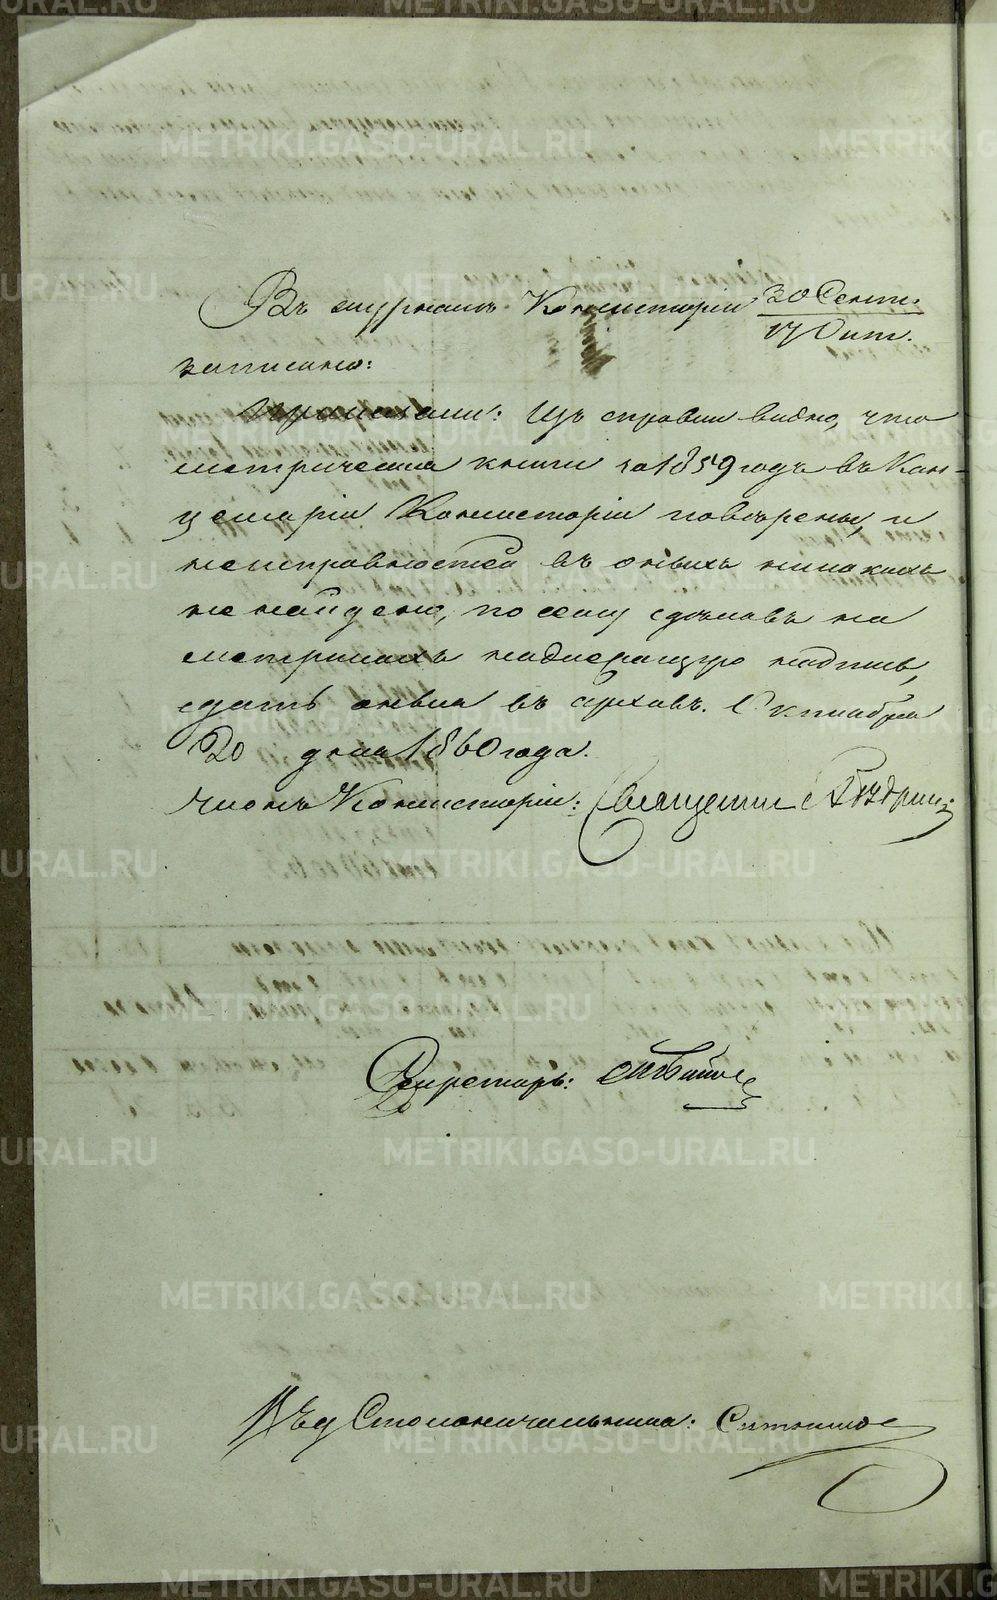 Въ журналѣ Консисторіи 30 Сент.
17 Окт.
записано:
Приказали: Изъ справки видно, что
метрическія книги за 1859 годъ въ Кан-
целяріи Консисторіи повѣрены, и
неисправностей въ оныхъ никакихъ
не найдено, по сему сдѣлавъ на
метрикахъ надлежащую надпись,
сдать оныя въ архивъ. Октября
20 дня 1860 года.
Членъ Консисторіи: Священникъ
Секретарь:
Столоначальника:
METRIKI.GASO-URAL.RU